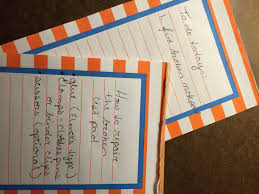 To do today:
1. fix broken notepad
How to repair
the broken
list pad
glue (Elmer's type)
clamps - clothes pins
or binder clips
scissors (optional)